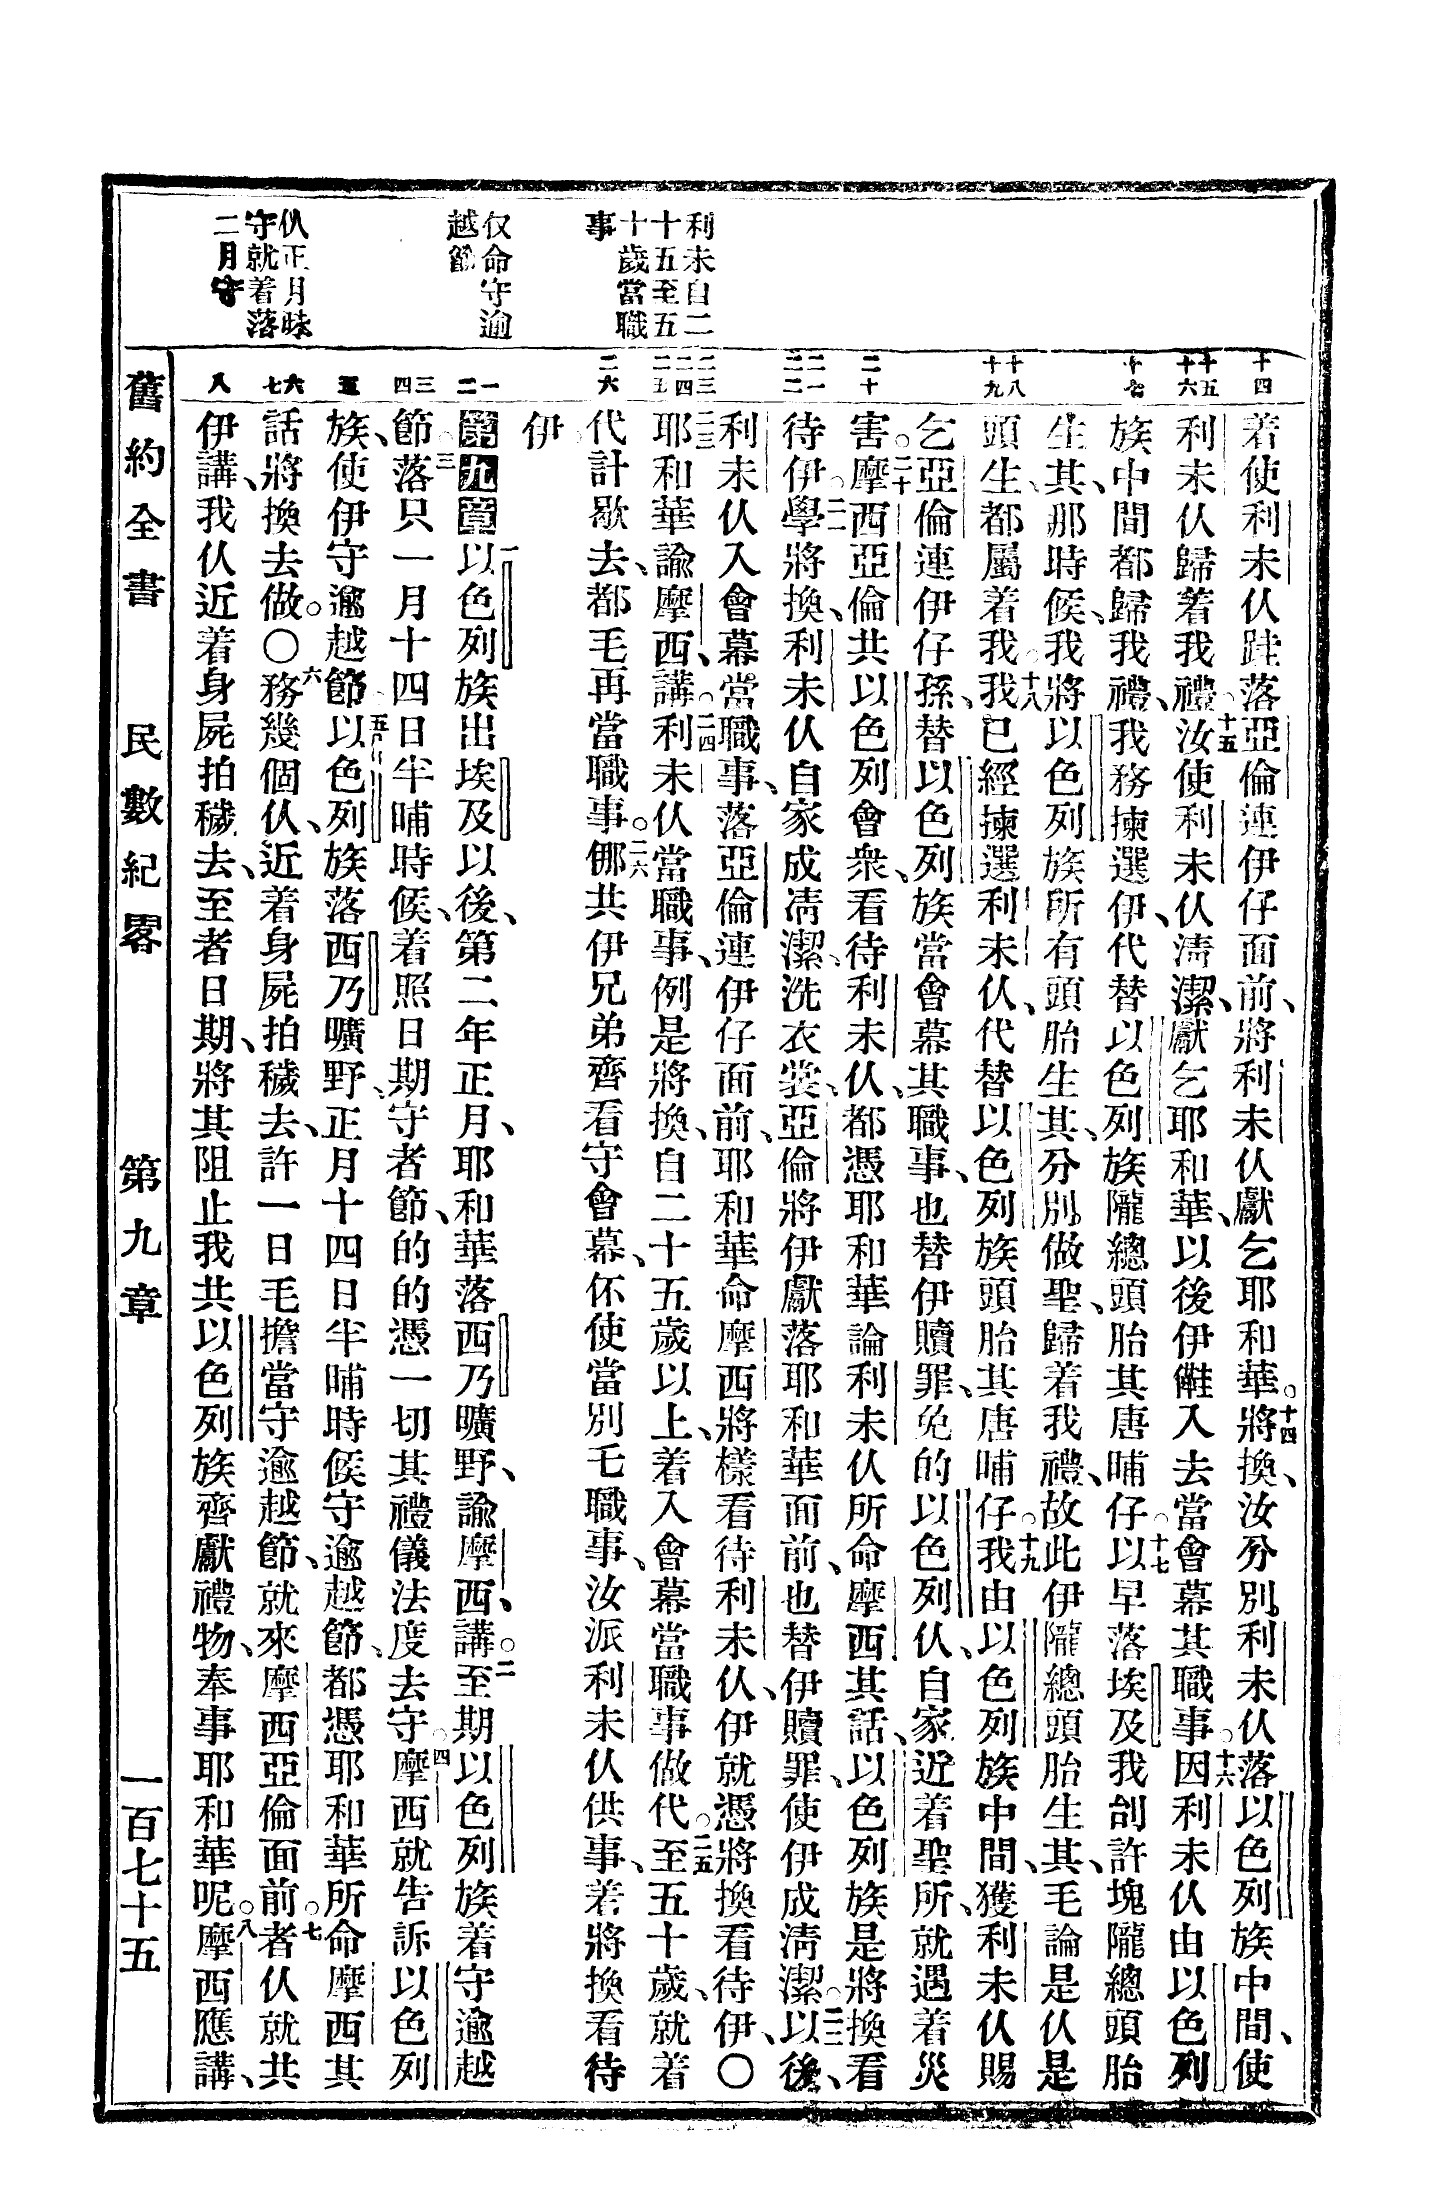 利未自二
十五至五
十歲當職
事
仅命守逾
越節
仈正月昧
守就着落
二月守
十四
十五
十六
十七
十八
十九
二十
二一
二二
二三
二四
二五
二六
一
二
三
四
五
六
七
八
着使利未仈跬落亞倫連伊仔面前、將利未仈獻乞耶和華。十四將換、汝分別利未仈落以色列族中間、使
利未仈歸着我禮、十五汝使利未仈淸潔、獻乞耶和華、以後伊儺入去當會幕其職事。十六因利未仈由以色列
族中間都歸我禮、我務揀選伊、代替以色列族隴總頭胎其唐晡仔。十七以早落埃及我刣許塊隴總頭胎
生其、那時候、我將以色列族所有頭胎生其、分別做聖、歸着我禮、故此伊隴總頭胎生其、毛論是仈是
頭生、都屬着我。十八我已經揀選利未仈、代替以色列族頭胎其唐晡仔。十九我由以色列族中間、獲利未仈賜
乞亞倫連伊仔孫、替以色列族當會幕其職事、也替伊贖罪、免的以色列仈、自家近着聖所、就遇着災
害。二十摩西亞倫共以色列會衆、看待利未仈、都憑耶和華論利未仈所命摩西其話、以色列族是將換看
待伊。二一學將換、利未仈自家成淸潔、洗衣裳、亞倫將伊獻落耶和華面前、也替伊贖罪、使伊成淸潔。二二以後、
利未仈入會幕當職事、落亞倫連伊仔面前、耶和華命摩西將樣看待利未仈、伊就憑將換看待伊、〇
二三耶和華諭摩西、講。二四利未仈當職事、例是將換、自二十五歲以上、着入會幕當職事做代。二五至五十歲、就着
代計歇去、都毛再當職事。二六㑚共伊兄弟齊看守會幕、伓使當別乇職事、汝派利未仈供事、着將換看待
伊
第九章一以色列族出埃及以後、第二年正月、耶和華落西乃曠野、諭摩西、講。二至期以色列族着守逾越
節。三節落只一月十四日半晡時候、着照日期守者節、的的憑一切其禮儀法度去守。四摩西就告訴以色列
族、使伊守逾越節。五以色列族落西乃曠野、正月十四日半晡時候守逾越節、都憑耶和華所命摩西其
話將換去做。〇六務幾個仈、近着身屍拍穢去、許一日毛擔當守逾越節、就來摩西亞倫面前。七者仈就共
伊講、我仈近着身屍拍穢去、至者日期、將其阻止我共以色列族齊獻禮物、奉事耶和華呢。八摩西應講、
舊約全書　民數紀畧　第九章　一百七十五